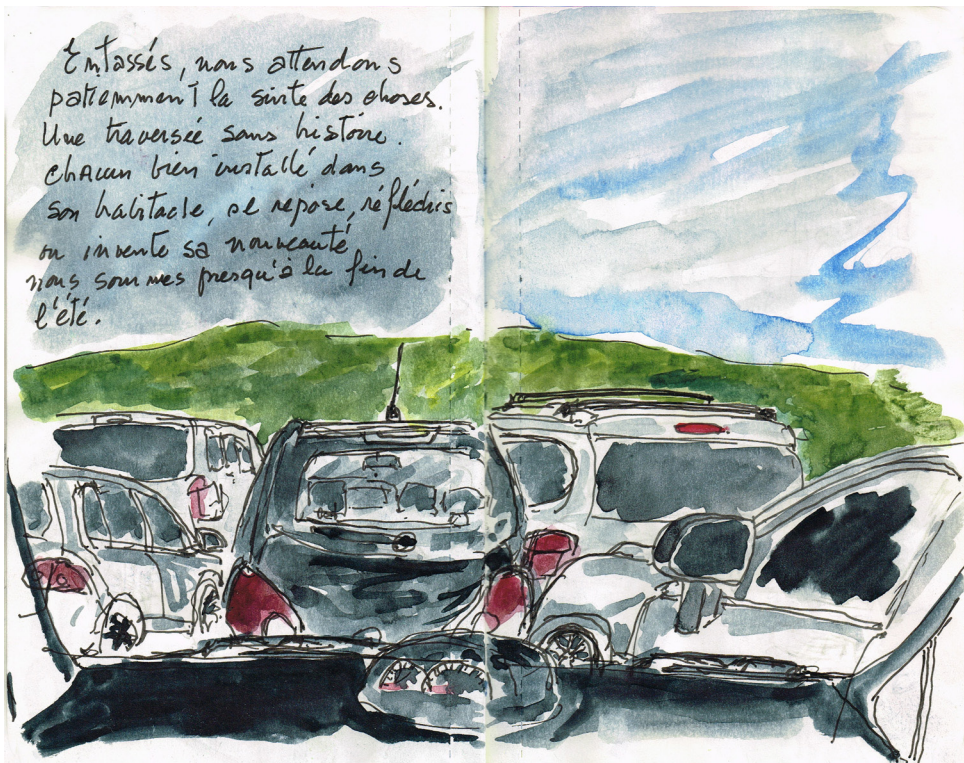 Entassés, nous attendons
patiemment la suite des choses.
Une traversée sans histoire.
chacun bien installé dans
son habitacle, se repose, réfléchis
ou invente sa nouveauté
nous sommes presqu'à la fin de
l'été.